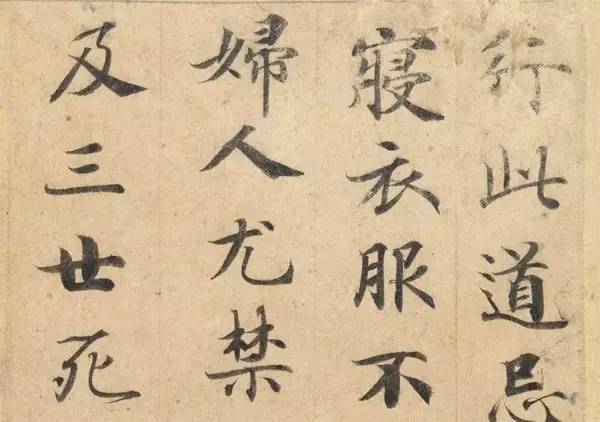 行此道忌
寝衣服不
婦人尤禁
及三世死